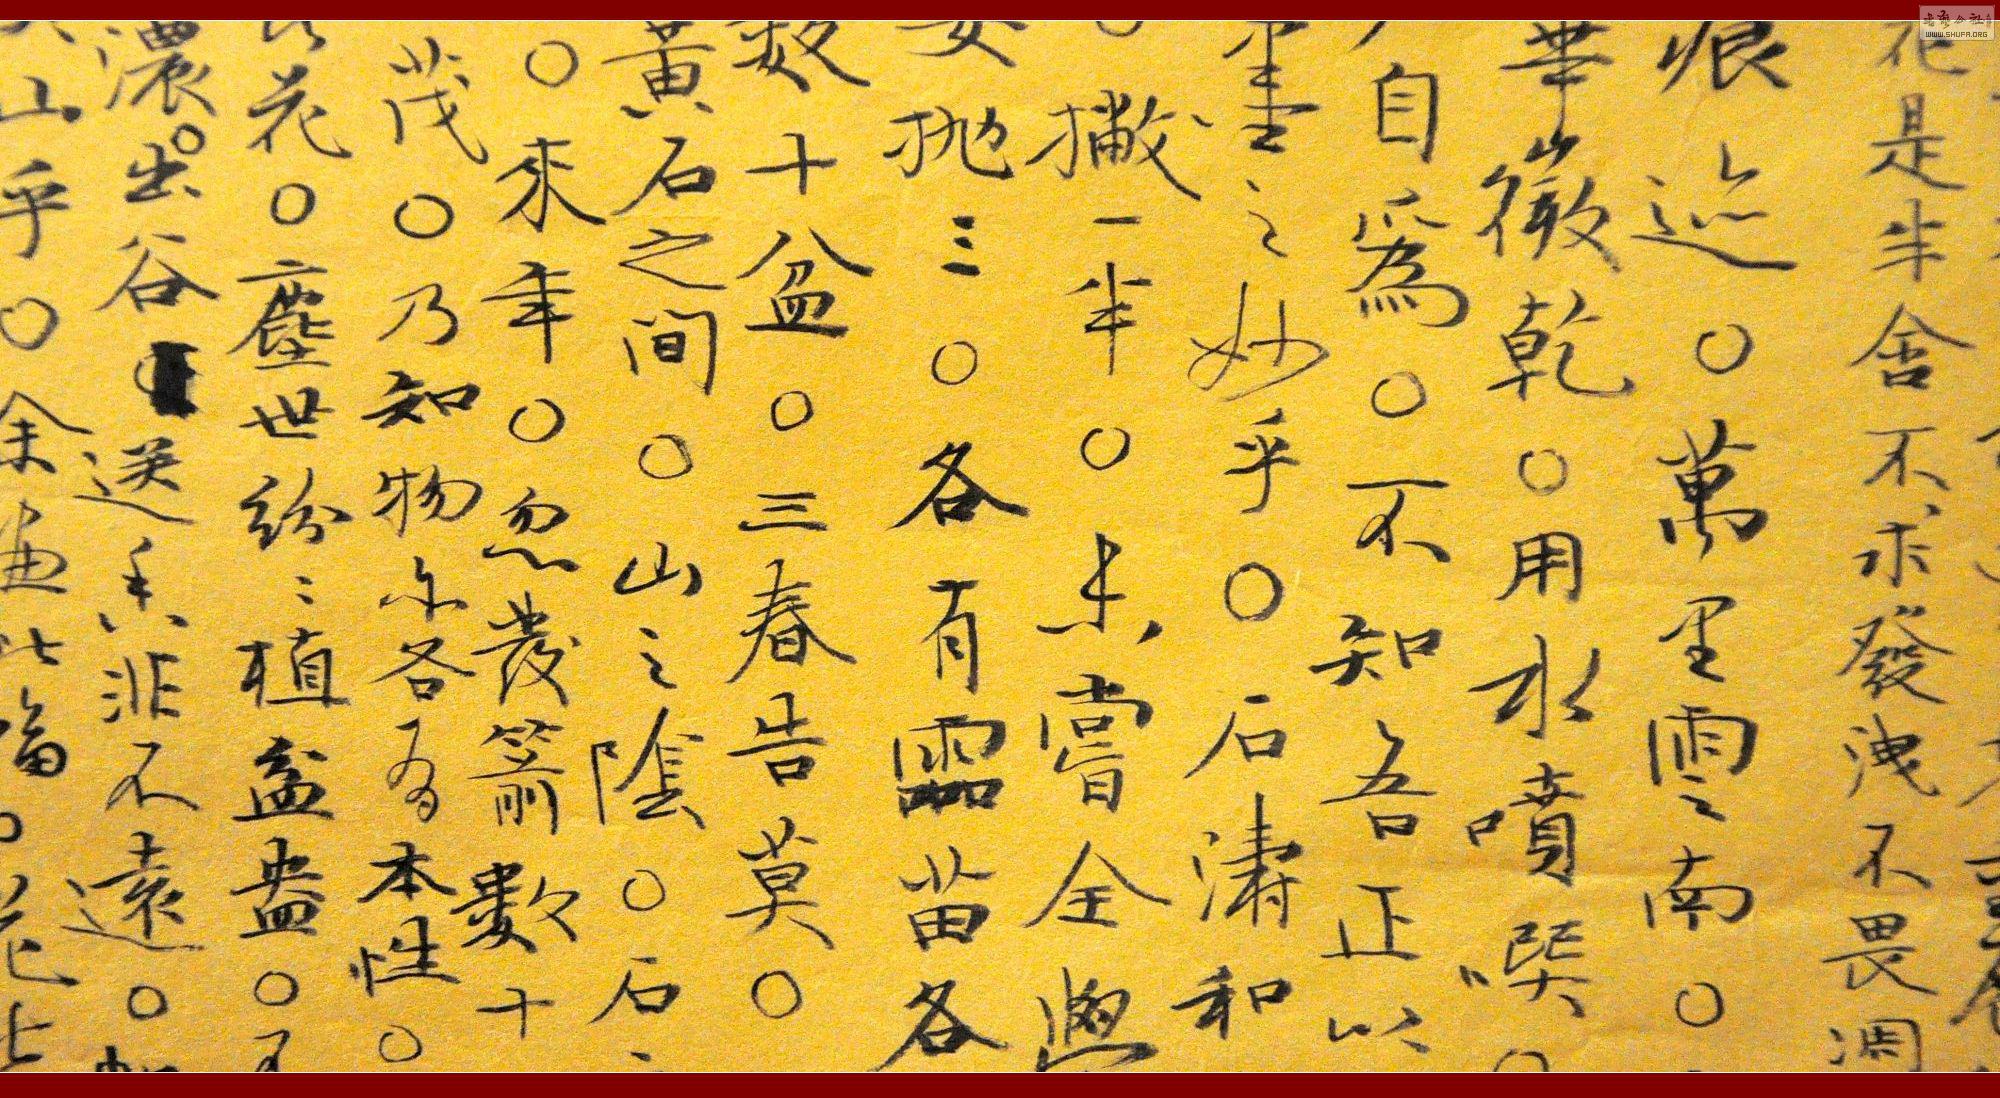 花是半含不求發洩不畏凋
痕迹○萬里雲南○
華徽乾○用水噴噀○
自為○不知吾正以
墨之妙乎○石濤和
○撇一半○未嘗全與
安拋三○各有靈苗各
數十盆○三春告莫○
黃石之間○山之陰○石
○來年○忽發箭數十
茂○乃知物亦各有本性○
花○塵世紛々植盆盎○
濃○出谷送香非不遠○
山乎○余畫此幅○花
書法公社
WWW.SHUFA.ORG